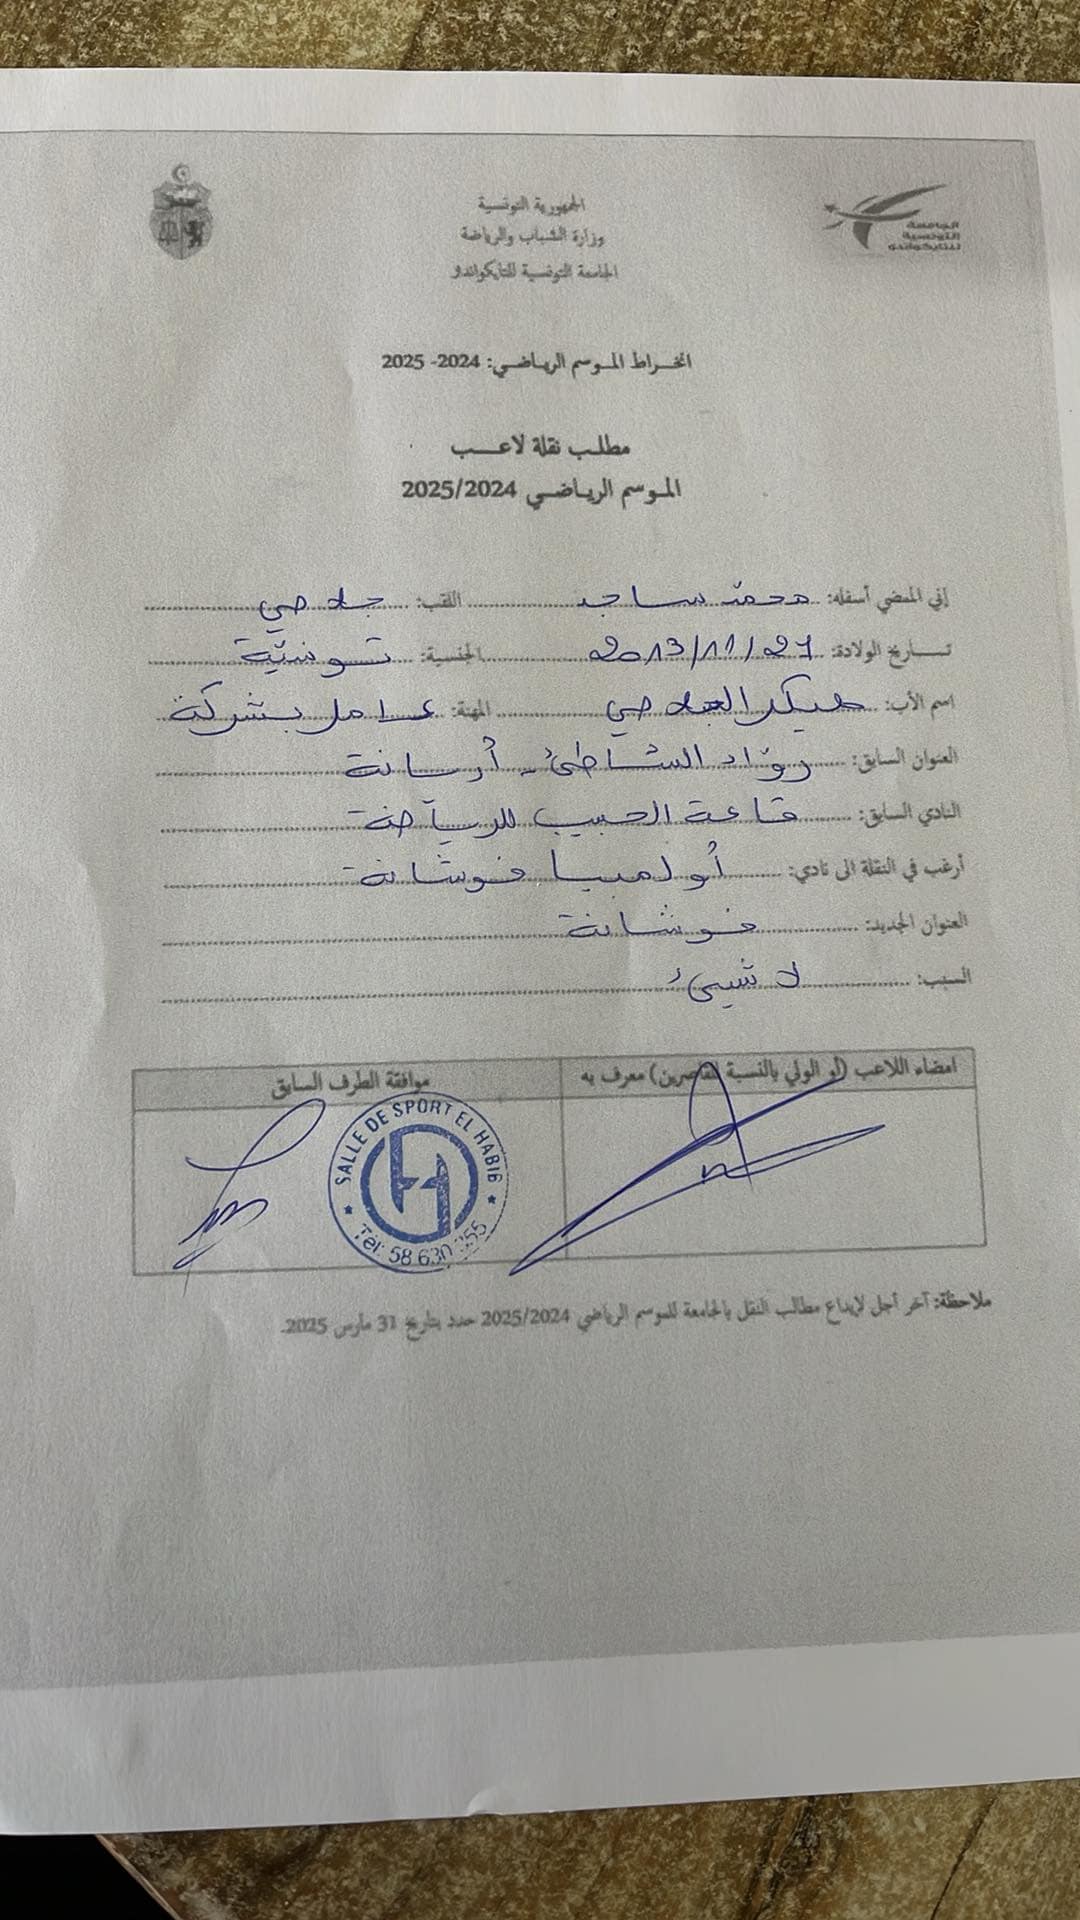 الجمهورية التونسية
وزارة الشباب والرياضة
الجامعة التونسية للتايكواندو
الجامعة
التونسية
للتايكواندو
انخراط الموسم الرياضي: 2024- 2025
مطلب نقلة لاعب
الموسم الرياضي 2025/2024
إني الممضي أسفله: محمد ساجد اللقب:
تاريخ الولادة: 2013/11/27 الجنسية: تونسية
اسم الأب: المهنة: عامل بشركة
العنوان السابق: روّاد الشاطئ - أريانة
النادي السابق: قاعة الحبيب للرياضة
أرغب في النقلة الى نادي: أولمبيا فوشانة
العنوان الجديد: فوشانة
السبب: لا شيئ
امضاء اللاعب (أو الولي بالنسبة للقاصرين) معرف به
موافقة الطرف السابق
SALLE DE SPORT EL HABIB
Tél: 58 630
ملاحظة: آخر أجل لإيداع مطالب النقل بالجامعة للموسم الرياضي 2025/2024 حدد بتاريخ 31 مارس 2025.